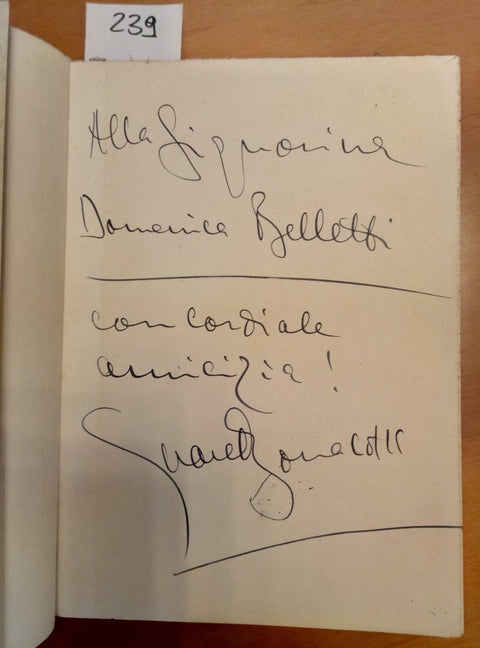 239
Alla Signorina
Domenica Belletti
con cordiale
amicizia!